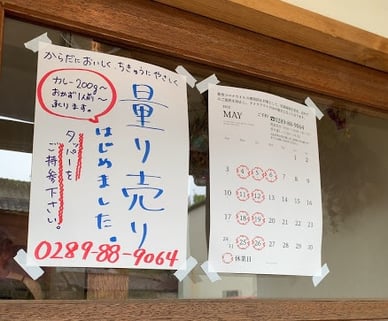 からだにおいしく、ちきゅうにやさしく
カレー200g〜
おかず1人前〜
承ります。
量り売り
はじめました。
タッパーを
ご持参下さい。
0289-88-9064
MAY
0289-88-9064
1 2
3 4 5 6 7 8 9
10 11 12 13 14 15 16
17 18 19 20 21 22 23
24/31 25 26 27 28 29 30
休業日